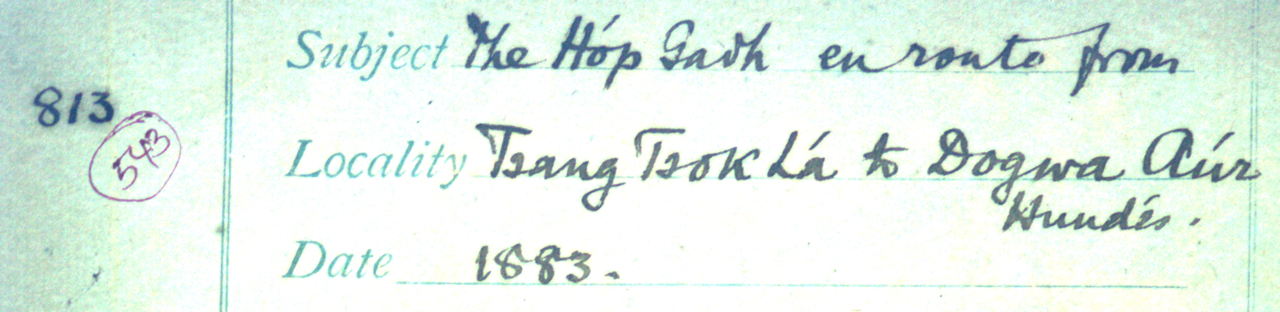 Subject The Hóp Gadh en route from
813
543
Locality Tsang Tsok Lá to Dogwa Aúr
Hundés.
Date 1883.